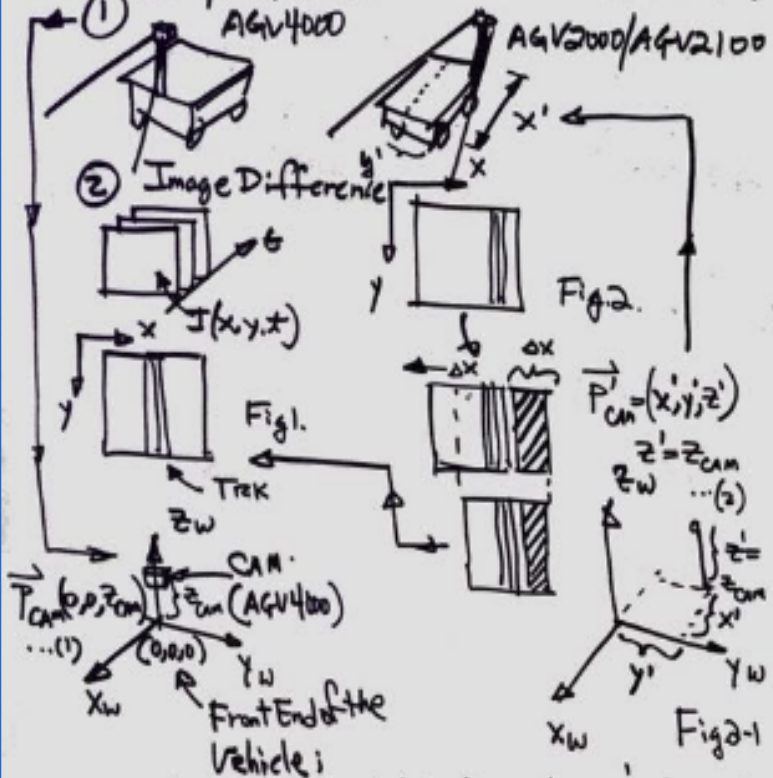 ①
AGV4000
AGV2000/AGV2100
x'
y'
x
② Image Difference
t
y
I(x,y,t)
Fig.2.
x
y
Δx
Δx
Fig1.
TRK
P'CAM=(x',y',z')
z'=zCAM
...(2)
ZW
ZW
CAM.
PCAM(0,0,ZCAM)
ZCAM (AGV4000)
...(1)
(0,0,0)
YW
XW
Front End of the
Vehicle;
z'=
ZCAM
x'
y'
YW
XW
Fig2-1